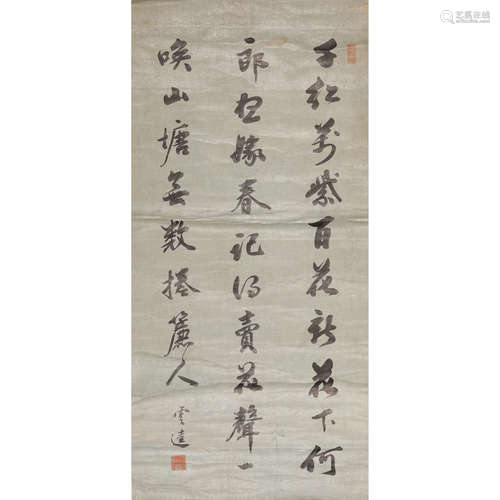 千紅萬紫百花新花下何
郎想嫁春記得賣花聲一
喚山塘無數捲簾人
雲達